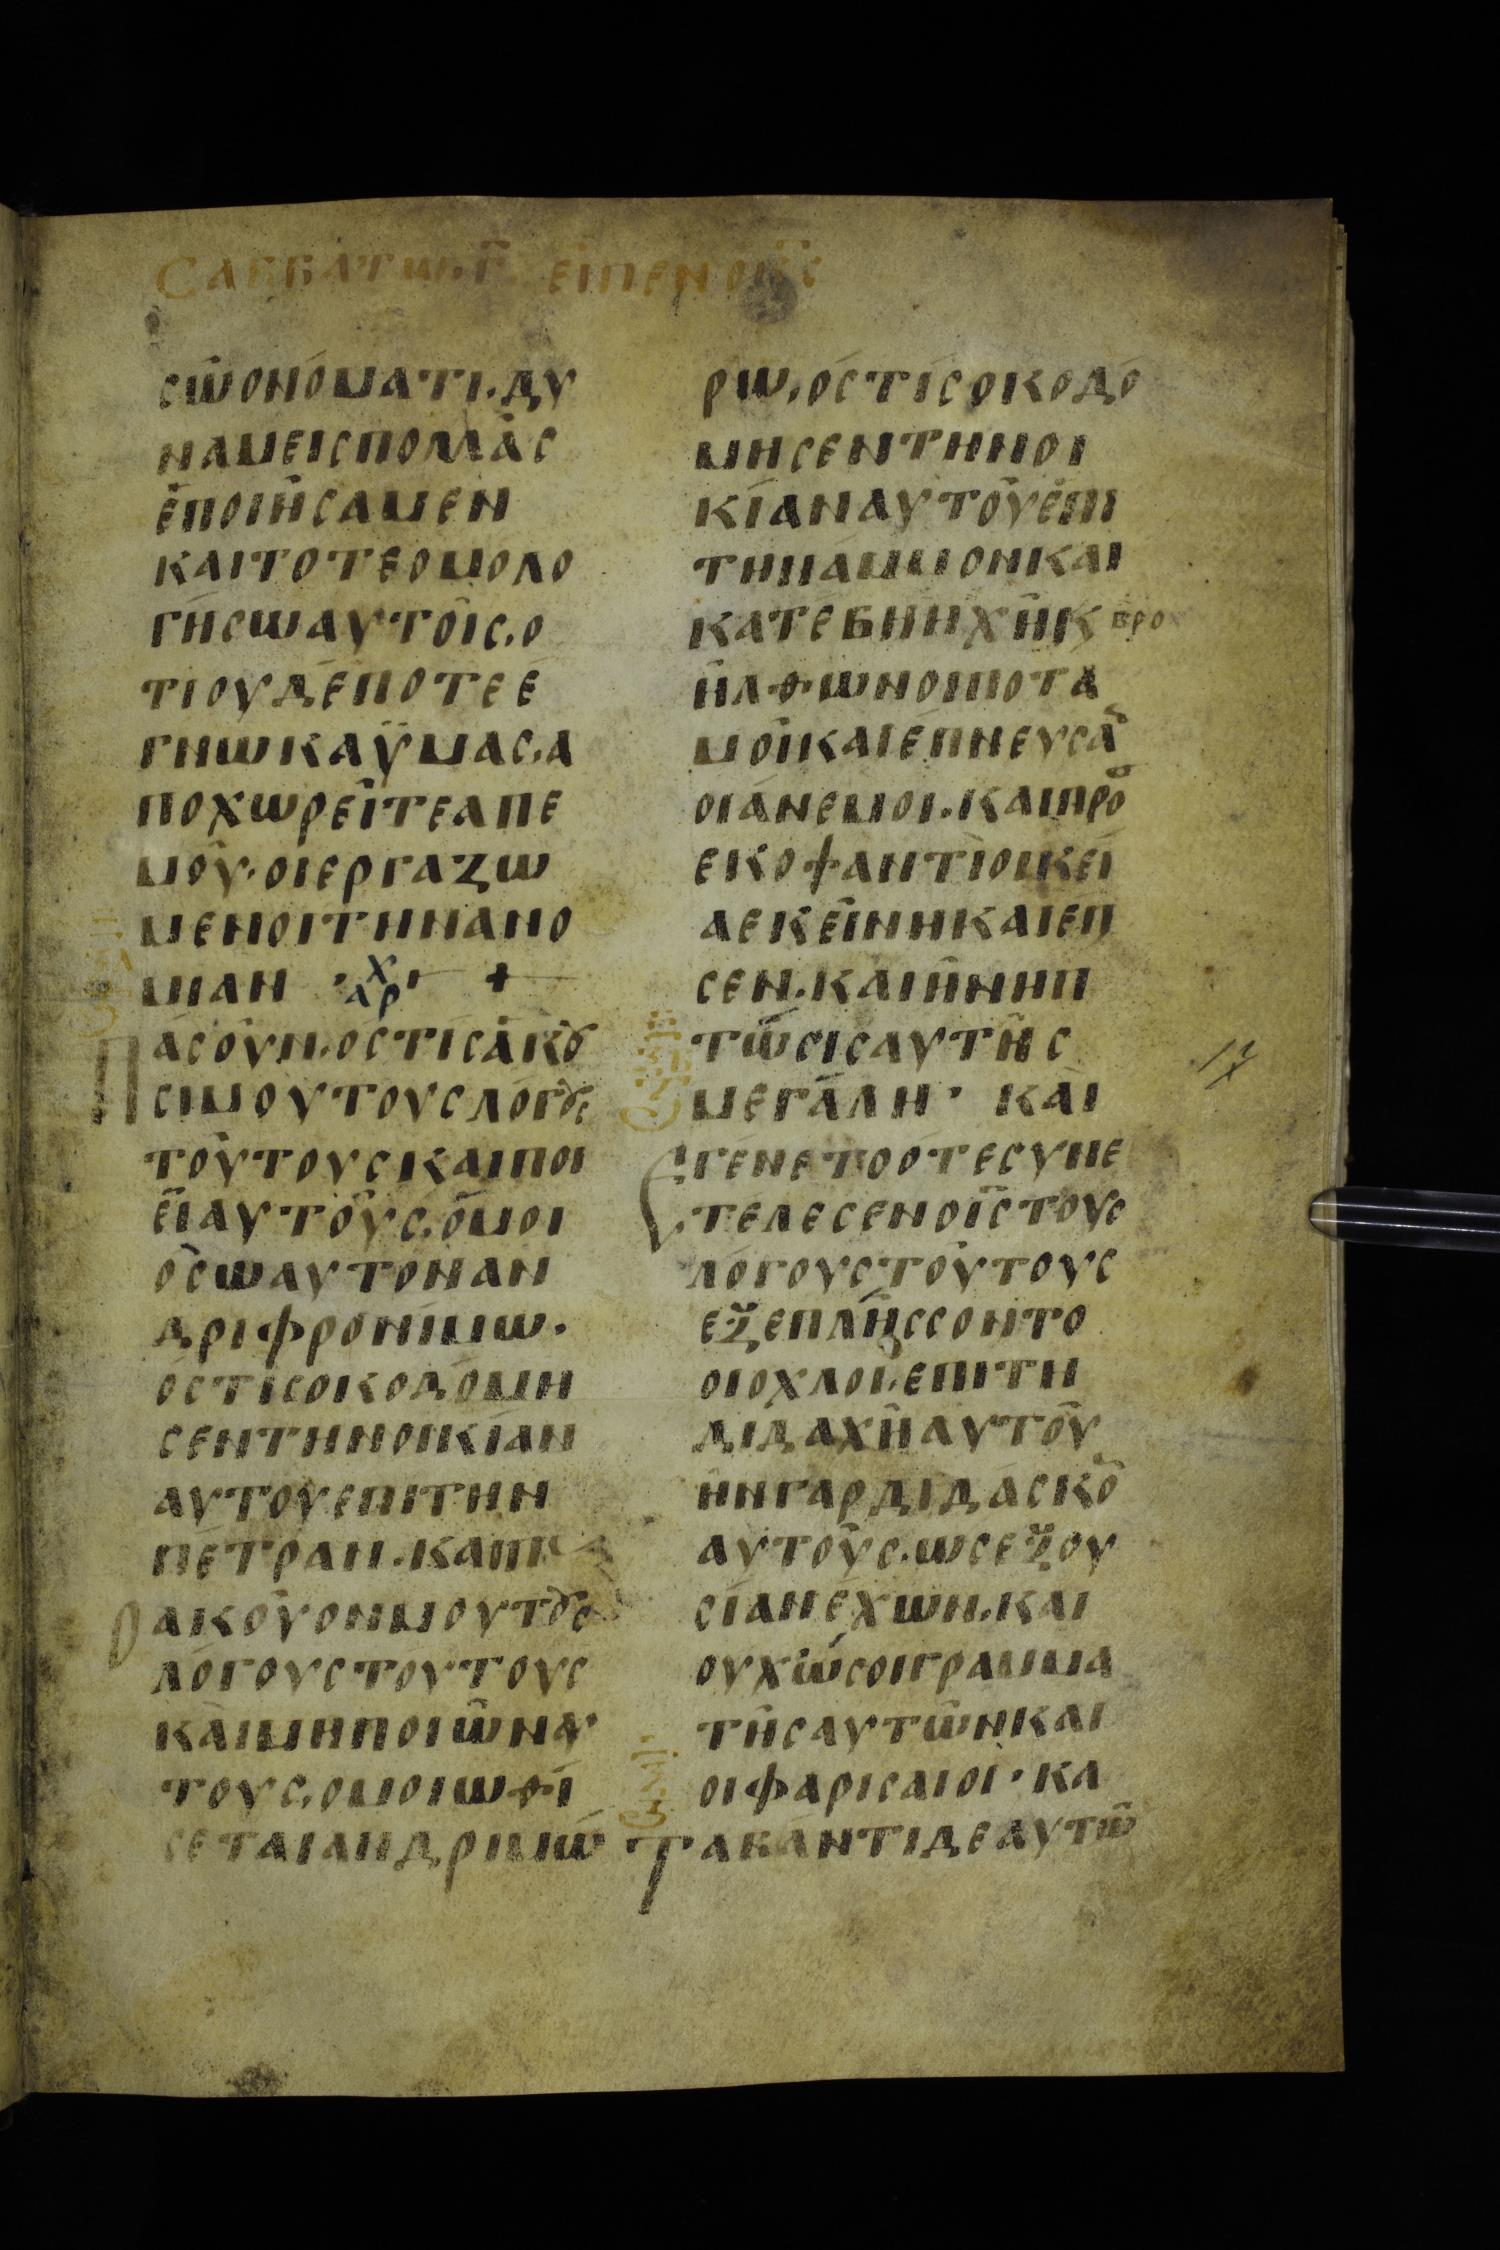 ϹΑΒΒΑΤΩ·Γ̅ ΕΙΠΕΝΟΚ̅Ϲ̅
ϹΩΟΝΟΜΑΤΙ·ΔΥ
ΝΑΜΕΙϹΠΟΛΛΑϹ
ΕΠΟΙΗϹΑΜΕΝ
ΚΑΙΤΟΤΕΟΜΟΛΟ
ΓΗϹΩΑΥΤΟΙϹ·Ο
ΤΙΟΥΔΕΠΟΤΕΕ
ΓΗΩΚΑΫΜΑϹ·Α
ΠΟΧΩΡΕΙΤΕΑΠΕ
ΜΟΥ·ΟΙΕΡΓΑΖΩ
ΜΕΝΟΙΤΗΝΑΝΟ
ΜΙΑΝ ΑΡΧ +
ΠΑϹΟΥΝ·ΟϹΤΙϹΑΚȢ
ϹΙΜΟΥΤΟΥϹΛΟΓȢϹ
ΤΟΥΤΟΥϹΚΑΙΠΟΙ
ΕΙΑΥΤΟΥϹ·ΟΜΟΙ
ΟϹΩΑΥΤΟΝΑΝ
ΔΡΙΦΡΟΝΙΜΩ·
ΟϹΤΙϹΟΚΟΔΟΜΗ
ϹΕΝΤΗΝΟΙΚΙΑΝ
ΑΥΤΟΥΕΠΙΤΗΝ
ΠΕΤΡΑΝ·ΚΑΙΠ
ΟΑΚΟΥΟΝΜΟΥΤȢϹ
ΛΟΓΟΥϹΤΟΥΤΟΥϹ
ΚΑΙΜΗΠΟΙΩΝΑΥ
ΤΟΥϹ·ΟΜΟΙΩΘΙ
ϹΕΤΑΙΑΝΔΡΙΜΩ
ΡΩ·ΟϹΤΙϹΟΚΟΔΟ
ΜΗϹΕΝΤΗΝΟΙ
ΚΙΑΝΑΥΤΟΥΕΠΙ
ΤΗΝΑΜΜΟΝΚΑΙ
ΚΑΤΕΒΗΗΧΗΚ ΒΡΟΧ
ΗΛΘΩΝΟΙΠΟΤΑ
ΜΟΙΚΑΙΕΠΝΕΥϹΑ̅
ΟΙΑΝΕΜΟΙ·ΚΑΙΠΡΟϹ
ΕΚΟΦΑΝΤΙΟΙΚΕΙ
ΑΕΚΕΙΝΗΚΑΙΕΠ
ϹΕΝ·ΚΑΙΗΝΗΠ
ΤΩϹΙϹΑΥΤΗϹ
ΜΕΓΑΛΗ· ΚΑΙ
ΕΓΕΝΕΤΟΟΤΕϹΥΝΕ
ΤΕΛΕϹΕΝΟΙ̅ϹΤΟΥϹ
ΛΟΓΟΥϹΤΟΥΤΟΥϹ
ΕΞΕΠΛΗϹϹΟΝΤΟ
ΟΙΟΧΛΟΙ·ΕΠΙΤΗ
ΔΙΔΑΧΗΑΥΤΟΥ
ΗΝΓΑΡΔΙΔΑϹΚΟ̅
ΑΥΤΟΥϹ·ΩϹΕΞΟΥ
ϹΙΑΝΕΧΩΝ·ΚΑΙ
ΟΥΧΩϹΟΙΓΡΑΜΜΑ
ΤΗϹΑΥΤΩΝΚΑΙ
ΟΙΦΑΡΙϹΑΙΟΙ·ΚΑ
ΤΑΒΑΝΤΙΔΕΑΥΤΩ
17